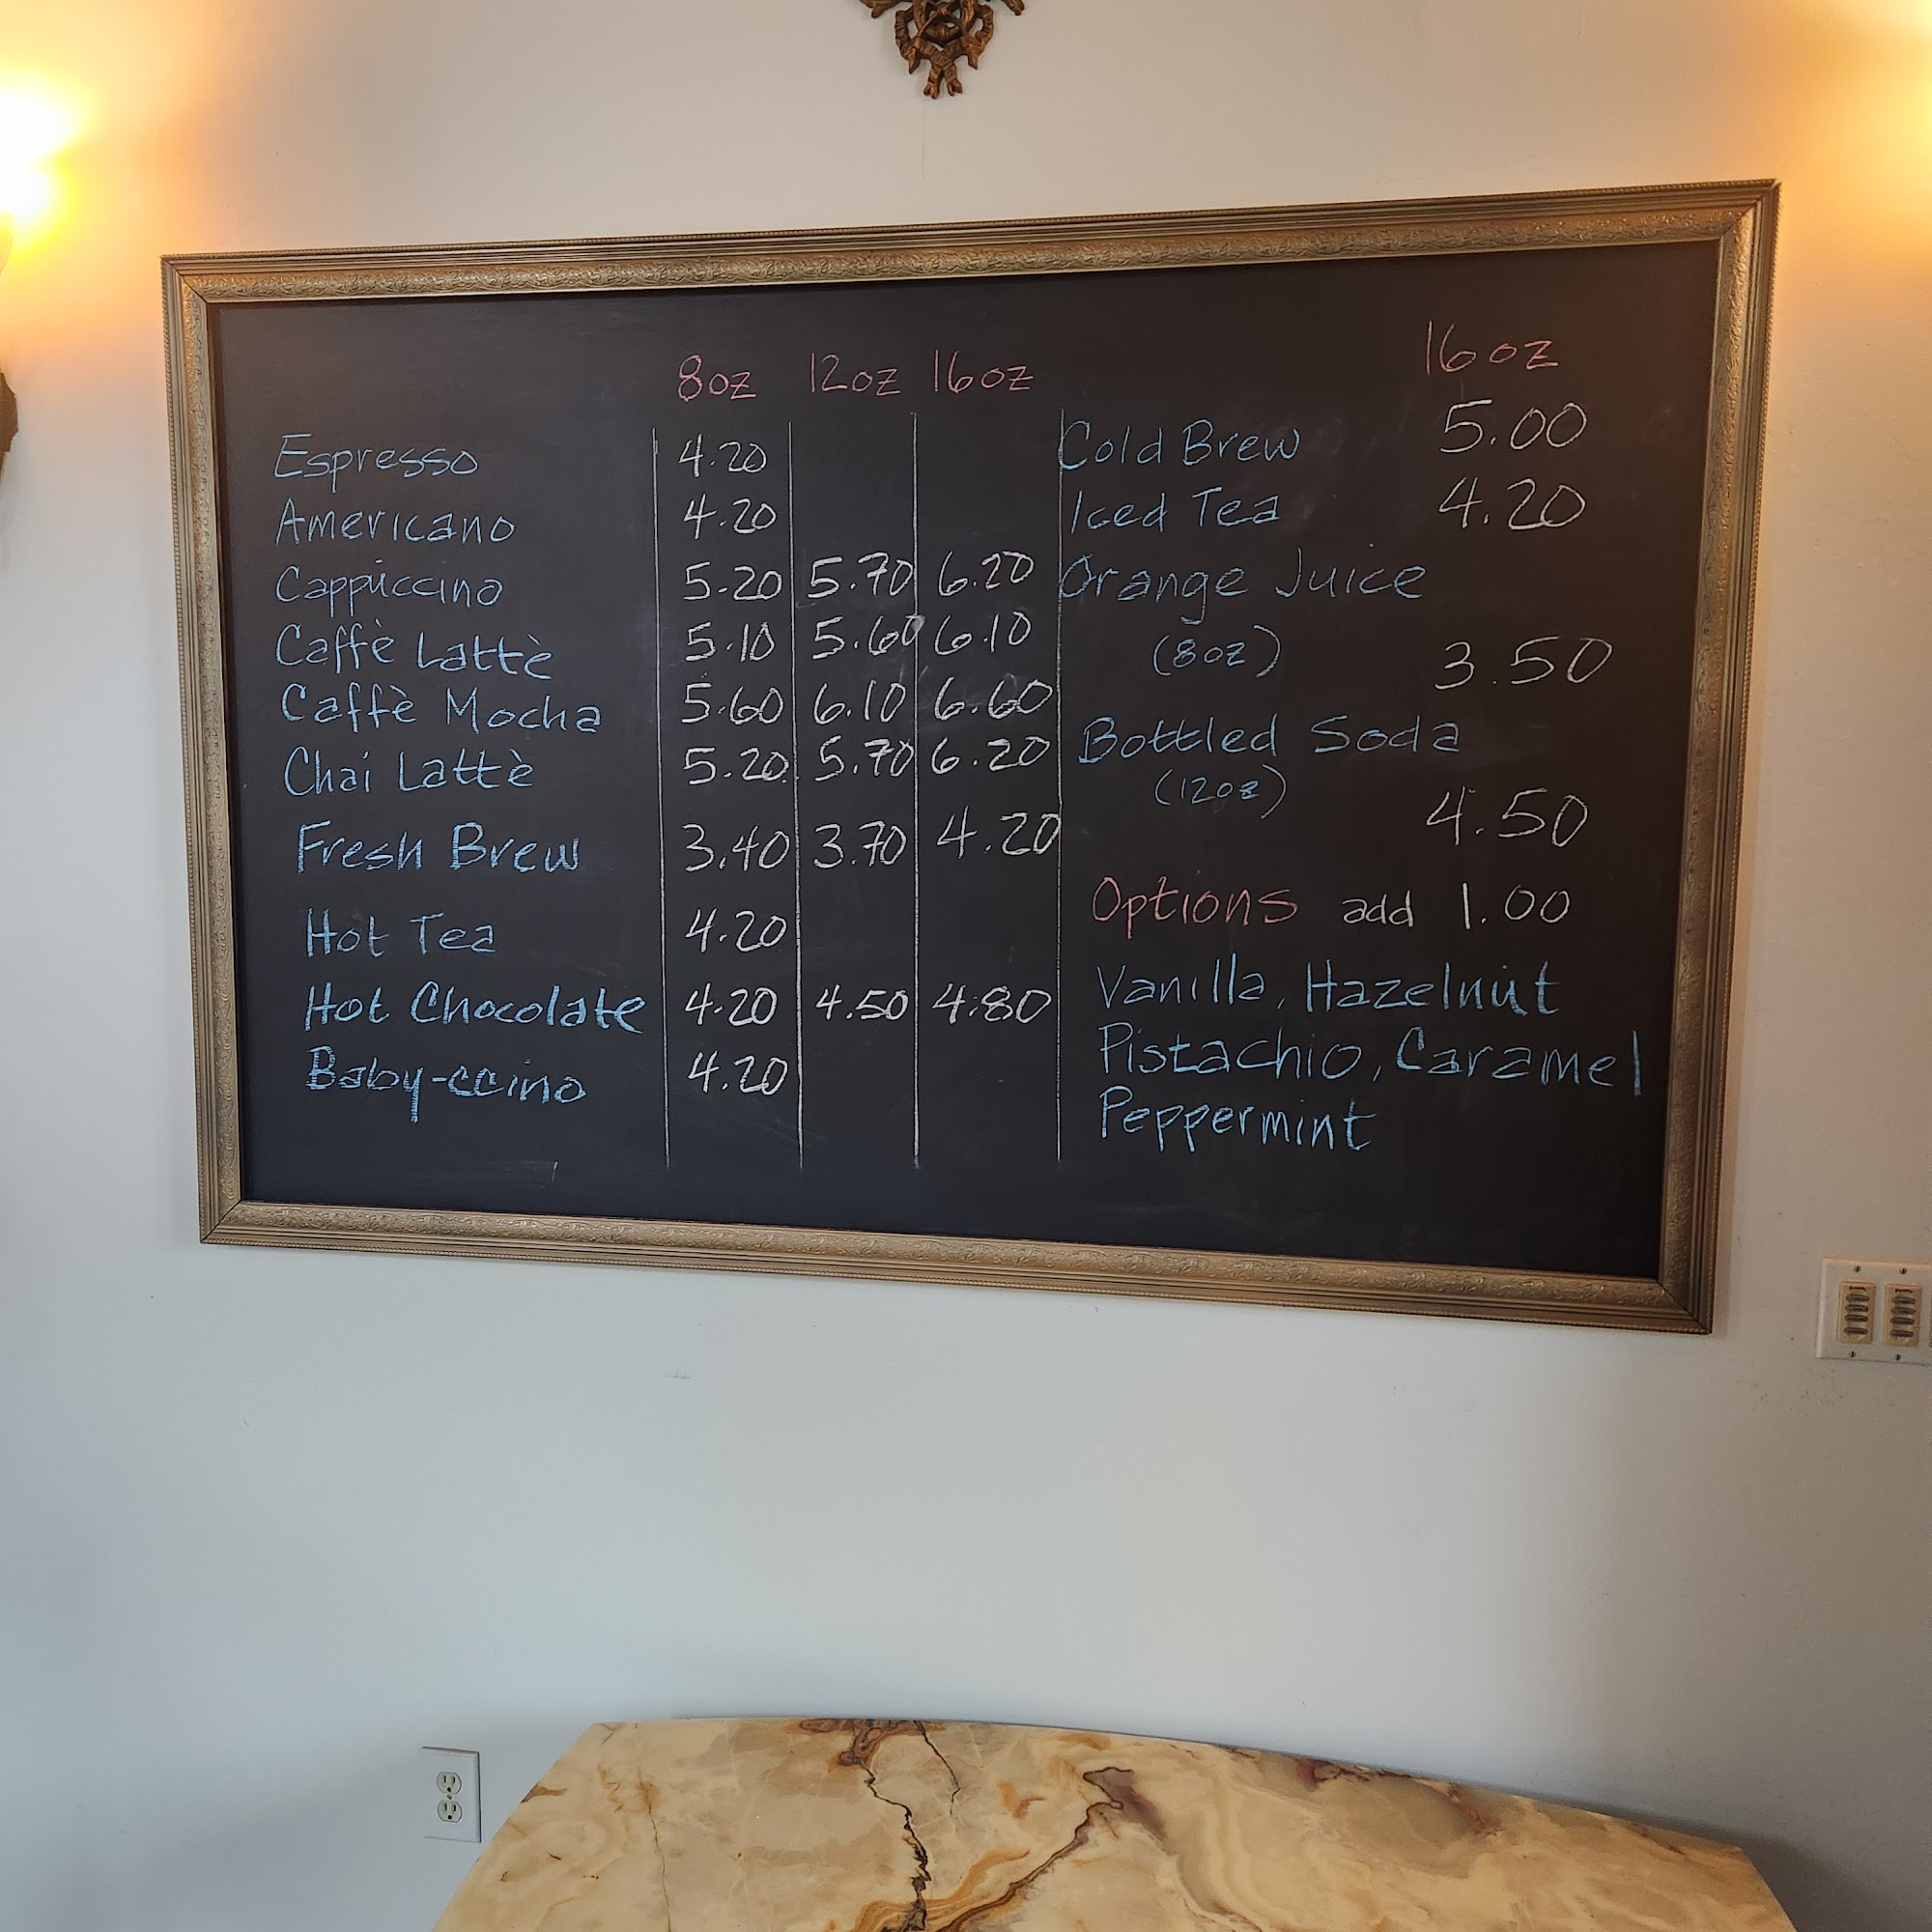 8oz 12oz 16oz
Espresso 4.20
Americano 4.20
Cappuccino 5.20 5.70 6.20
Caffè Lattè 5.10 5.60 6.10
Caffè Mocha 5.60 6.10 6.60
Chai Lattè 5.20 5.70 6.20
Fresh Brew 3.40 3.70 4.20
Hot Tea 4.20
Hot Chocolate 4.20 4.50 4.80
Baby-ccino 4.20
16oz
Cold Brew 5.00
Iced Tea 4.20
Orange Juice
(8oz) 3.50
Bottled Soda
(12oz) 4.50
Options add 1.00
Vanilla, Hazelnut
Pistachio, Caramel
Peppermint